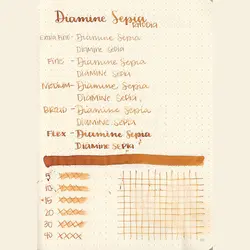 Diamine Sepia
Extra Fine - Diamine Sepia
Diamine Sepia
Fine - Diamine Sepia
Diamine Sepia
Medium - Diamine Sepia
Diamine Sepia
Broad - Diamine Sepia
Diamine Sepia
Flex - Diamine Sepia
Diamine Sepia
5 xxxx
10 xxxx
15 xxxx
20 xxxx
30 xxxx
40 xxxx